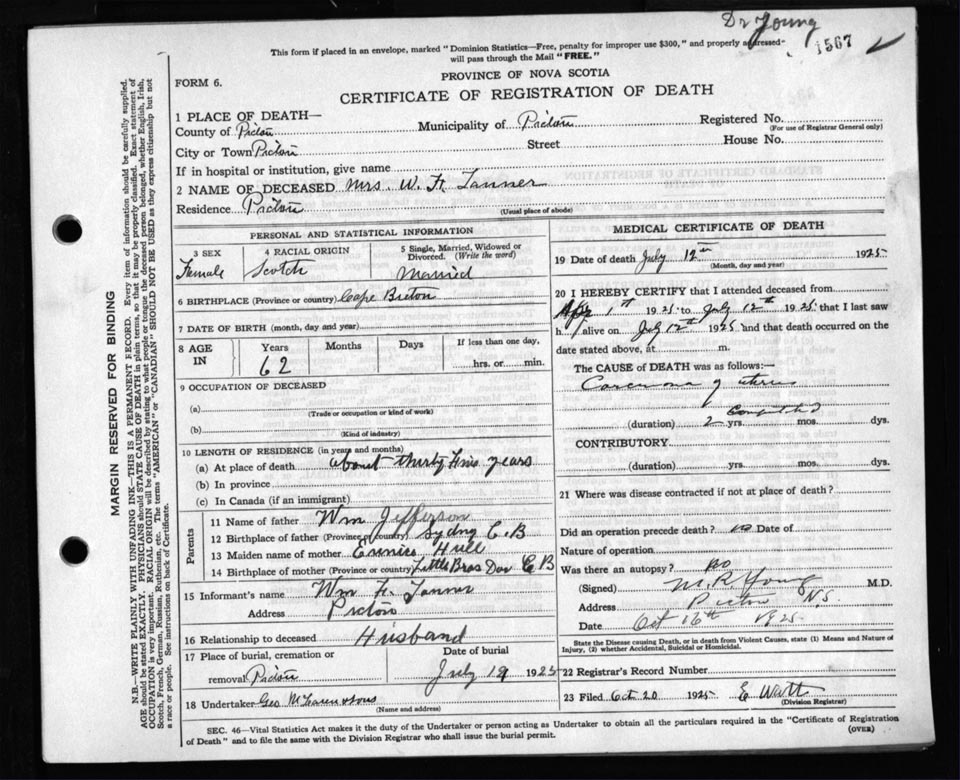 Dr Young
1567
This form if placed in an envelope, marked "Dominion Statistics—Free, penalty for improper use $300," and properly addressed—
will pass through the Mail "FREE."
FORM 6.
PROVINCE OF NOVA SCOTIA
CERTIFICATE OF REGISTRATION OF DEATH
1 PLACE OF DEATH—
County of Pictou Municipality of Pictou Registered No.
(For use of Registrar General only)
City or Town Pictou Street House No.
If in hospital or institution, give name
2 NAME OF DECEASED Mrs. W. H. Tanner
Residence Pictou (Usual place of abode)
PERSONAL AND STATISTICAL INFORMATION
3 SEX 4 RACIAL ORIGIN 5 Single, Married, Widowed or
Divorced. (Write the word)
Female Scotch Married
6 BIRTHPLACE (Province or country) Cape Breton
7 DATE OF BIRTH (month, day and year)
8 AGE IN Years Months Days If less than one day,
62 hrs. or min.
9 OCCUPATION OF DECEASED
(a)
(Trade or occupation or kind of work)
(b)
(Kind of industry)
10 LENGTH OF RESIDENCE (in years and months)
(a) At place of death about thirty years
(b) In province
(c) In Canada (if an immigrant)
Parents
11 Name of father Wm Jefferson
12 Birthplace of father (Province or country) Sydny C.B
13 Maiden name of mother Eunice Hull
14 Birthplace of mother (Province or country) Little Bras Dor C B
15 Informant's name Wm H. Tanner
Address Pictou
16 Relationship to deceased Husband
17 Place of burial, cremation or Date of burial
removal Pictou July 1925
18 Undertaker Geo
(Name and address)
MEDICAL CERTIFICATE OF DEATH
19 Date of death July 12th 1925
(Month, day and year)
20 I HEREBY CERTIFY that I attended deceased from
Apr 1st 1925 to July 12th 1925 that I last saw
h alive on July 12th 1925 and that death occurred on
date stated above, at m.
The CAUSE of DEATH was as follows:—
Carcinoma of uterus
(duration) 2 yrs. mos. dys.
CONTRIBUTORY
(duration) yrs. mos. dys.
21 Where was disease contracted if not at place of death?
Did an operation precede death? no Date of
Nature of operation
Was there an autopsy? no
(Signed) M. R. Young M.D.
Address Pictou N.S.
Date Oct 16th 1925
State the Disease causing Death, or in death from Violent Causes, state (1) Means and Nature of
Injury, (2) whether Accidental, Suicidal or Homicidal.
22 Registrar's Record Number
23 Filed Oct 20 1925 E Watt
(Division Registrar)
SEC. 46—Vital Statistics Act makes it the duty of the Undertaker or person acting as Undertaker to obtain all the particulars required in the "Certificate of Registration
of Death" and to file the same with the Division Registrar who shall issue the burial permit. (OVER)
MARGIN RESERVED FOR BINDING
N.B.—WRITE PLAINLY WITH UNFADING INK—THIS IS A PERMANENT RECORD. Every item of information should be carefully supplied.
AGE should be stated EXACTLY. PHYSICIANS should STATE CAUSE OF DEATH in plain terms, so that it may be properly classified. Exact statement of
OCCUPATION is very important. RACIAL ORIGIN will be described by stating to what people or tongue the deceased person belonged, whether English, Irish,
Scotch, French, German, Russian, Ruthenian, etc. The terms "AMERICAN" or "CANADIAN" SHOULD NOT BE USED as they express citizenship but not
a race or people. See instructions on back of Certificate.